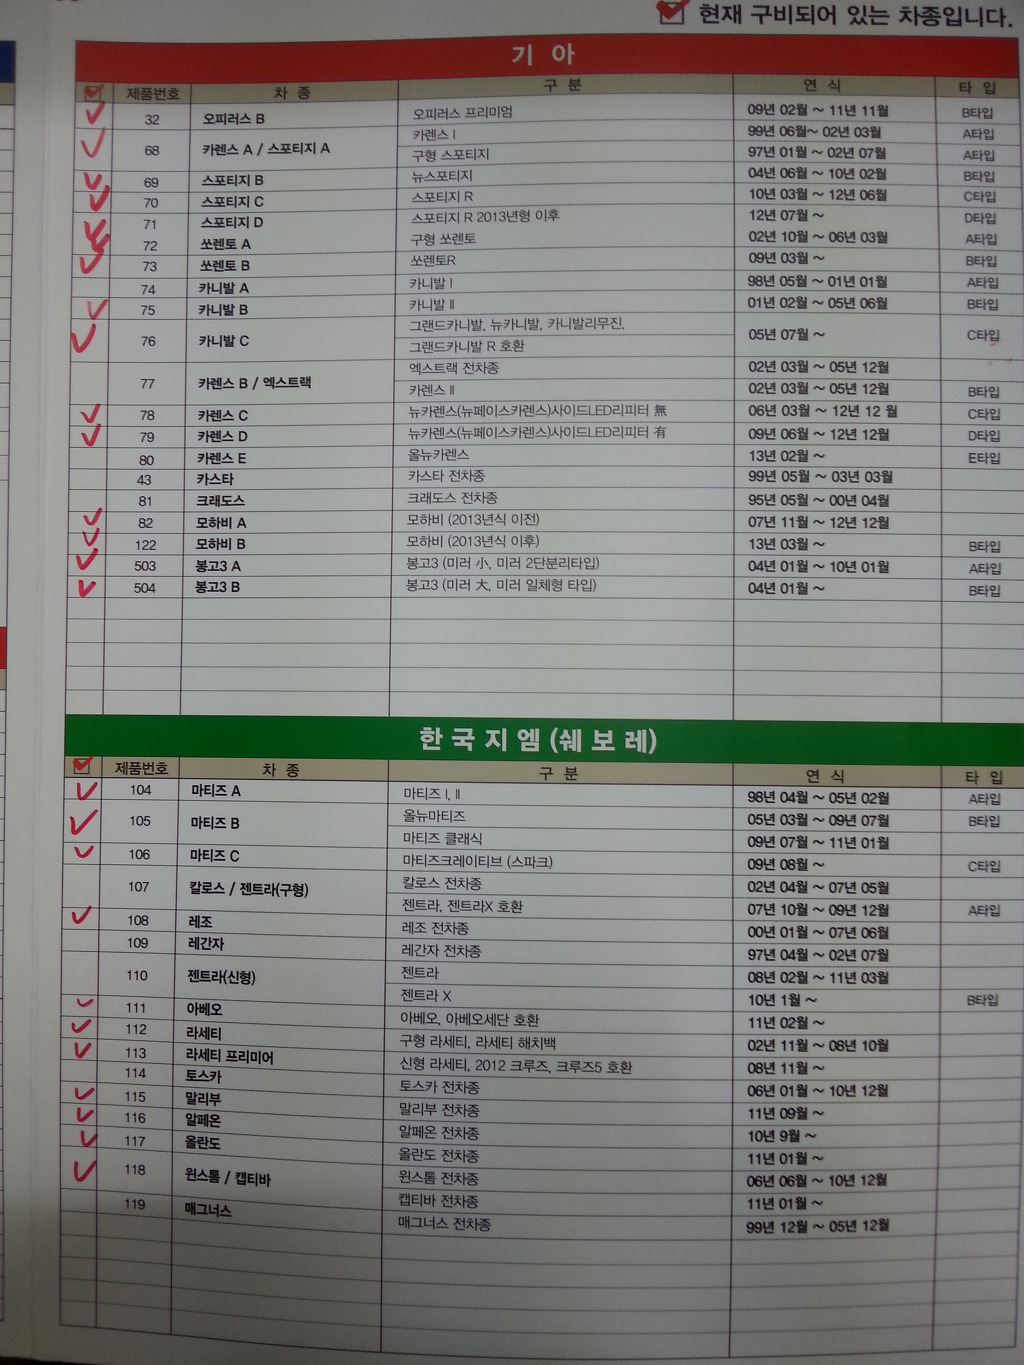 현재 구비되어 있는 차종입니다.
기 아
제품번호 차 종 구 분 연 식 타 입
32 오피러스 B 오피러스 프리미엄 09년 02월 ~ 11년 11월 B타입
68 카렌스 A / 스포티지 A 카렌스 I 99년 06월~ 02년 03월 A타입
구형 스포티지 97년 01월 ~ 02년 07월 A타입
69 스포티지 B 뉴스포티지 04년 06월 ~ 10년 02월 B타입
70 스포티지 C 스포티지 R 10년 03월 ~ 12년 06월 C타입
71 스포티지 D 스포티지 R 2013년형 이후 12년 07월 ~ D타입
72 쏘렌토 A 구형 쏘렌토 02년 10월 ~ 06년 03월 A타입
73 쏘렌토 B 쏘렌토R 09년 03월 ~ B타입
74 카니발 A 카니발 I 98년 05월 ~ 01년 01월 A타입
75 카니발 B 카니발 II 01년 02월 ~ 05년 06월 B타입
76 카니발 C 그랜드카니발, 뉴카니발, 카니발리무진, 05년 07월 ~ C타입
그랜드카니발 R 호환
77 카렌스 B / 엑스트랙 엑스트랙 전차종 02년 03월 ~ 05년 12월
카렌스 II 02년 03월 ~ 05년 12월 B타입
78 카렌스 C 뉴카렌스(뉴페이스카렌스)사이드LED리피터 無 06년 03월 ~ 12년 12 월 C타입
79 카렌스 D 뉴카렌스(뉴페이스카렌스)사이드LED리피터 有 09년 06월 ~ 12년 12월 D타입
80 카렌스 E 올뉴카렌스 13년 02월 ~ E타입
43 카스타 카스타 전차종 99년 05월 ~ 03년 03월
81 크래도스 크래도스 전차종 95년 05월 ~ 00년 04월
82 모하비 A 모하비 (2013년식 이전) 07년 11월 ~ 12년 12월
122 모하비 B 모하비 (2013년식 이후) 13년 03월 ~ B타입
503 봉고3 A 봉고3 (미러 小, 미러 2단분리타입) 04년 01월 ~ 10년 01월 A타입
504 봉고3 B 봉고3 (미러 大, 미러 일체형 타입) 04년 01월 ~ B타입
한국지엠(쉐보레)
제품번호 차 종 구 분 연 식 타 입
104 마티즈 A 마티즈 I, II 98년 04월 ~ 05년 02월 A타입
105 마티즈 B 올뉴마티즈 05년 03월 ~ 09년 07월 B타입
마티즈 클래식 09년 07월 ~ 11년 01월
106 마티즈 C 마티즈크레이티브 (스파크) 09년 08월 ~ C타입
107 칼로스 / 젠트라(구형) 칼로스 전차종 02년 04월 ~ 07년 05월
젠트라, 젠트라X 호환 07년 10월 ~ 09년 12월 A타입
108 레조 레조 전차종 00년 01월 ~ 07년 06월
109 레간자 레간자 전차종 97년 04월 ~ 02년 07월
110 젠트라(신형) 젠트라 08년 02월 ~ 11년 03월
젠트라 X 10년 1월 ~ B타입
111 아베오 아베오, 아베오세단 호환 11년 02월 ~
112 라세티 구형 라세티, 라세티 해치백 02년 11월 ~ 08년 10월
113 라세티 프리미어 신형 라세티, 2012 크루즈, 크루즈5 호환 08년 11월 ~
114 토스카 토스카 전차종 06년 01월 ~ 10년 12월
115 말리부 말리부 전차종 11년 09월 ~
116 알페온 알페온 전차종 10년 9월 ~
117 올란도 올란도 전차종 11년 01월 ~
118 윈스톰 / 캡티바 윈스톰 전차종 06년 06월 ~ 10년 12월
캡티바 전차종 11년 01월 ~
119 매그너스 매그너스 전차종 99년 12월 ~ 05년 12월